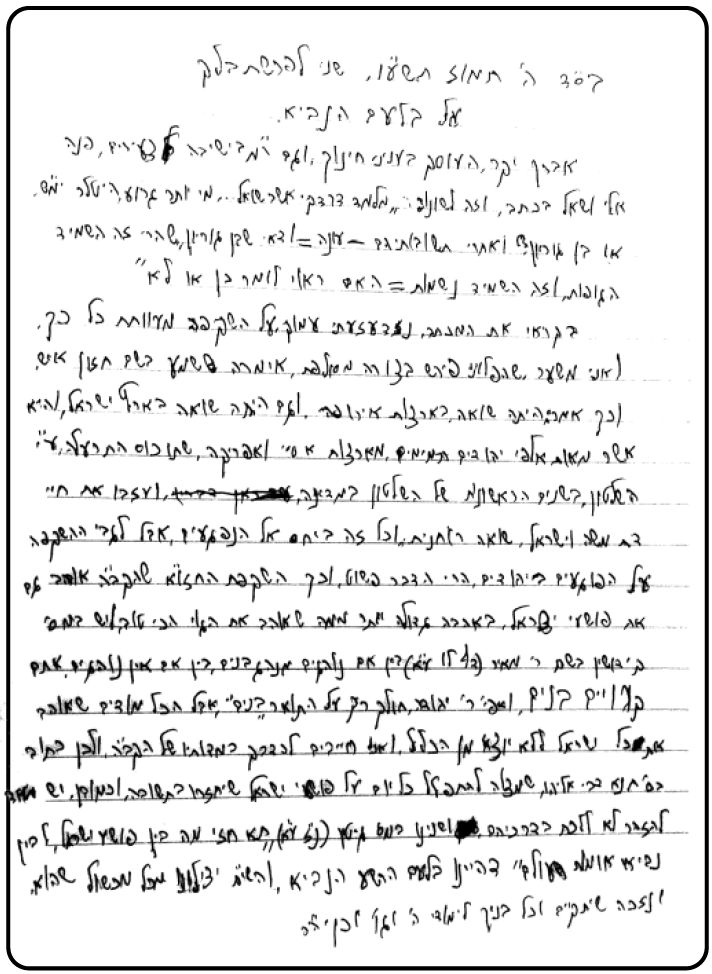 בס״ד ה' תמוז תשע״ו, שני לפרשת בלק
על בלעם הנביא.
אברך יקר, העוסק בעניני חינוך, וגם מ״מ בישיבה לצעירים, פנה
אלי ושאל בכתב, וזה לשונו: ״מלמד דרדקי אשר שואל... מי יותר גרוע, היטלר ימ״ש
או בן גוריון? ואחרי תשובותיהם – עונה = ודאי שבן גוריון, שהרי זה השמיד
הגופות, וזה השמיד נשמות = האם ראוי לומר כן או לא״
בקראי את המכתב, נזדעזעתי עמוק, על השקפה מעוותת כל כך.
ואני משער, שהפלוני פירש בצורה מסולפת, אימרה ששמע בשם חזון איש,
וכך אמר: היתה שואה, בארצות אירופה. וגם היתה שואה בארץ ישראל, והיא
אשר מאות אלפי יהודים תמימים, מארצות אסיה ואפריקה, שתו כוס התרעלה, ע״י
השלטון, בשנים הראשונות של השלטון במדינה, ועזבו את חיי
דת משה וישראל, שואה רוחנית. וכל זה ביחס אל הנפגעים, אבל לגבי ההשקפה
על הפוגעים ביהודים, הרי הדבר פשוט, וכך השקפת החזו״א שהקב״ה אוהב גם
את פושעי ישראל, באהבה גדולה יותר ממה שאוהב את הגוי הכי טוב, ויש במס'
קידושין בשם ר' מאיר (דף לו ע״א) בין אם נוהגים מנהג בנים, בין אם אין נוהגים, אתם
קרויים בנים, ואפי' ר' יהודה, חולק רק על התואר ״בנים״, אבל הכל מודים שאוהב
את כל ישראל ללא יוצא מן הכלל, ואנו חייבים להדבק במדותיו של הקב״ה, ולכן כתוב
בס' תנא דבי אליהו, שמצוה להתפלל כל יום על פושעי ישראל שיחזרו בתשובה, וכמובן, יש
להזהר לא ללכת בדרכיהם, ושנינו במס' גיטין (נז ע״א) ״תא חזי מה בין פושעי ישראל, לבין
נביאי אומות העולם״ דהיינו בלעם הרשע הנביא, והשי״ת יצילנו מכל מכשול שהוא,
ונזכה שיתקיים וכל בניך לימודי ה' וגו' וכן יה״ר